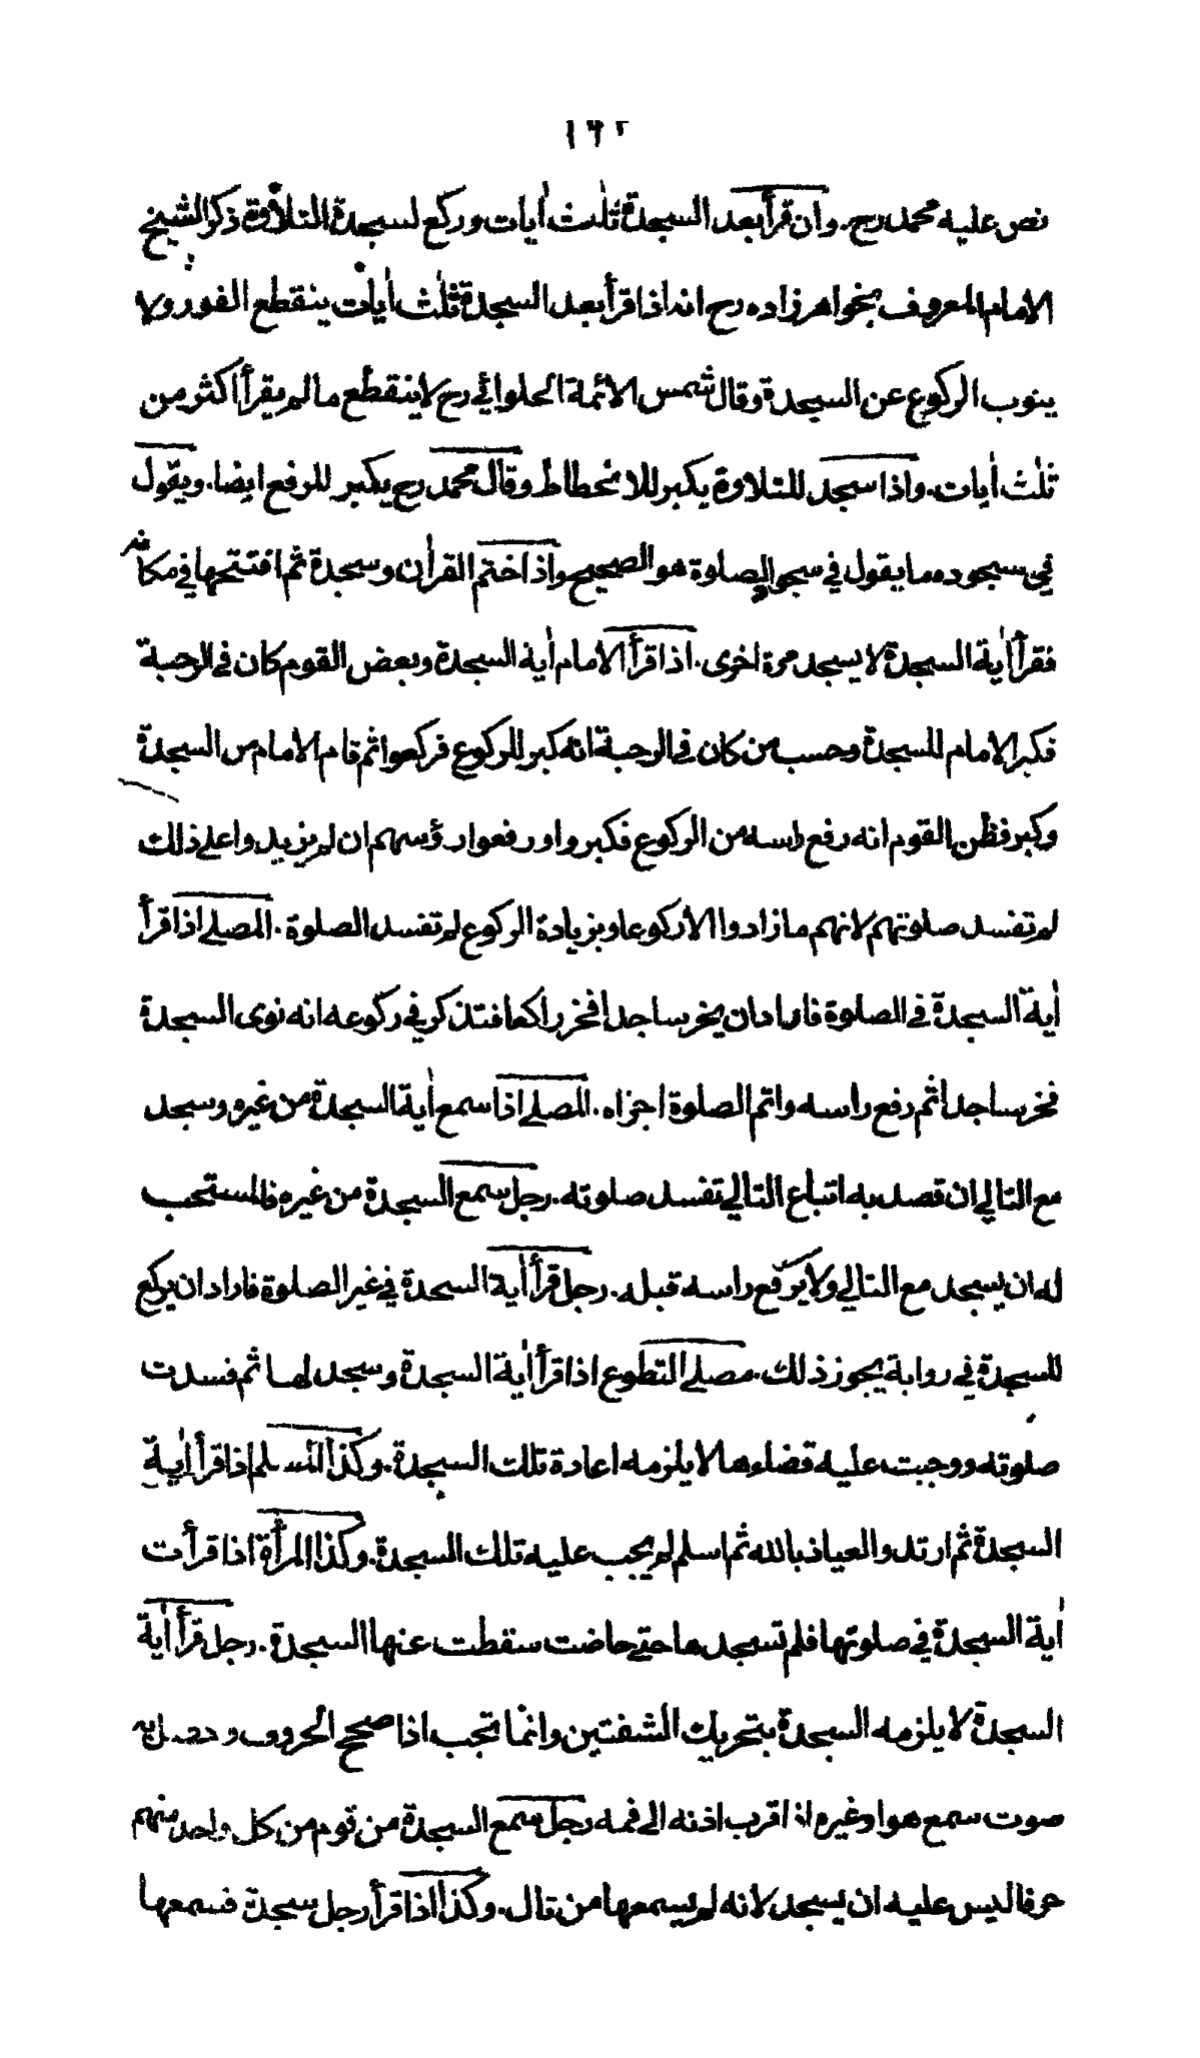 ١٦٢
نص عليه محمد رح. وان قرأ بعد السجدة ثلٰث اٰيات وركع لسجدة التلاوة ذكر الشيخ
الامام المعروف بخواهرزاده رح انه اذا قرأ بعد السجدة ثلٰث اٰيات ينقطع الفور ولا
ينوب الركوع عن السجدة وقال شمس الائمة الحلوائي رح لا ينقطع ما لم يقرأ اكثر من
ثلٰث اٰيات. واذا سجد للتلاوة يكبر للانحطاط وقال محمد رح يكبر للرفع ايضا. ويقول
في سجوده ما يقول في سجود الصلوة هو الصحيح واذا ختم القراٰن وسجدة ثم افتتحها في مكانه
فقرأ اٰية السجدة لا يسجد مرة اخرى. اذا قرأ الامام اٰية السجدة وبعض القوم كان في الرحبة
فكبر الامام للسجدة وحسب من كان في الرحبة انه كبر للركوع فركعوا ثم قام الامام من السجدة
وكبر فظن القوم انه رفع راسه من الركوع فكبروا ورفعوا رؤسهم ان لم يزيدوا على ذلك
لم تفسد صلوتهم لانهم ما زادوا الا ركوعا وبزيادة الركوع لم تفسد الصلوة. المصلي اذا قرأ
اٰية السجدة في الصلوة فاراد ان يخر ساجدا فخر راكعا فتذكر في ركوعه انه نوى السجدة
فخر ساجدا ثم رفع راسه واتم الصلوة اجزاه. المصلي اذا سمع اٰية السجدة من غيره وسجد
مع التالي ان قصد به اتباع التالي تفسد صلوته. رجل سمع السجدة من غيره فالمستحب
له ان يسجد مع التالي ولا يرفع راسه قبله. رجل قرأ اٰية السجدة في غير الصلوة فاراد ان يركع
للسجدة في رواية يجوز ذلك. مصلي التطوع اذا قرأ اٰية السجدة وسجد لها ثم فسدت
صلوته ووجبت عليه قضاءها لا يلزمه اعادة تلك السجدة. وكذا المسلم اذا قرأ اٰية
السجدة ثم ارتد والعياذ بالله ثم اسلم لم يجب عليه تلك السجدة. وكذا المرأة اذا قرأت
اٰية السجدة في صلوتها فلم تسجدها حتى حاضت سقطت عنها السجدة. رجل قرأ اٰية
السجدة لا يلزمه السجدة بتحريك الشفتين وانما تجب اذا صحح الحروف وحصل به
صوت سمع هو او غيره اذا قرب اذنه الى فمه رجل سمع السجدة من قوم من كل واحد منهم
حرفا ليس عليه ان يسجد لانه لم يسمعها من تال. وكذا اذا قرأ رجل سجدة فسمعها